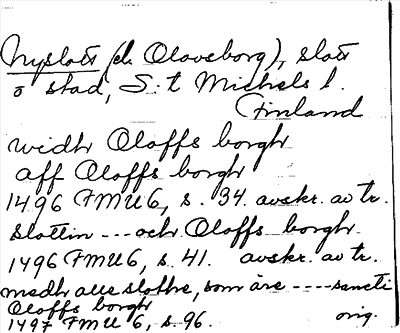 Nyslott (el. Olavsborg), slott
o stad, S:t Michels l.
Finland
widh Oloffs borgh
aff Oloffs borgh
1496 FMU 6, s. 34. avskr. av tr.
slottin --- och Oloffs borgh
1496 FMU 6, s. 41. avskr. av tr.
medh alle slothe, som äre ---- sancti
Oloffs borgh
1497 FMU 6, s. 96. orig.